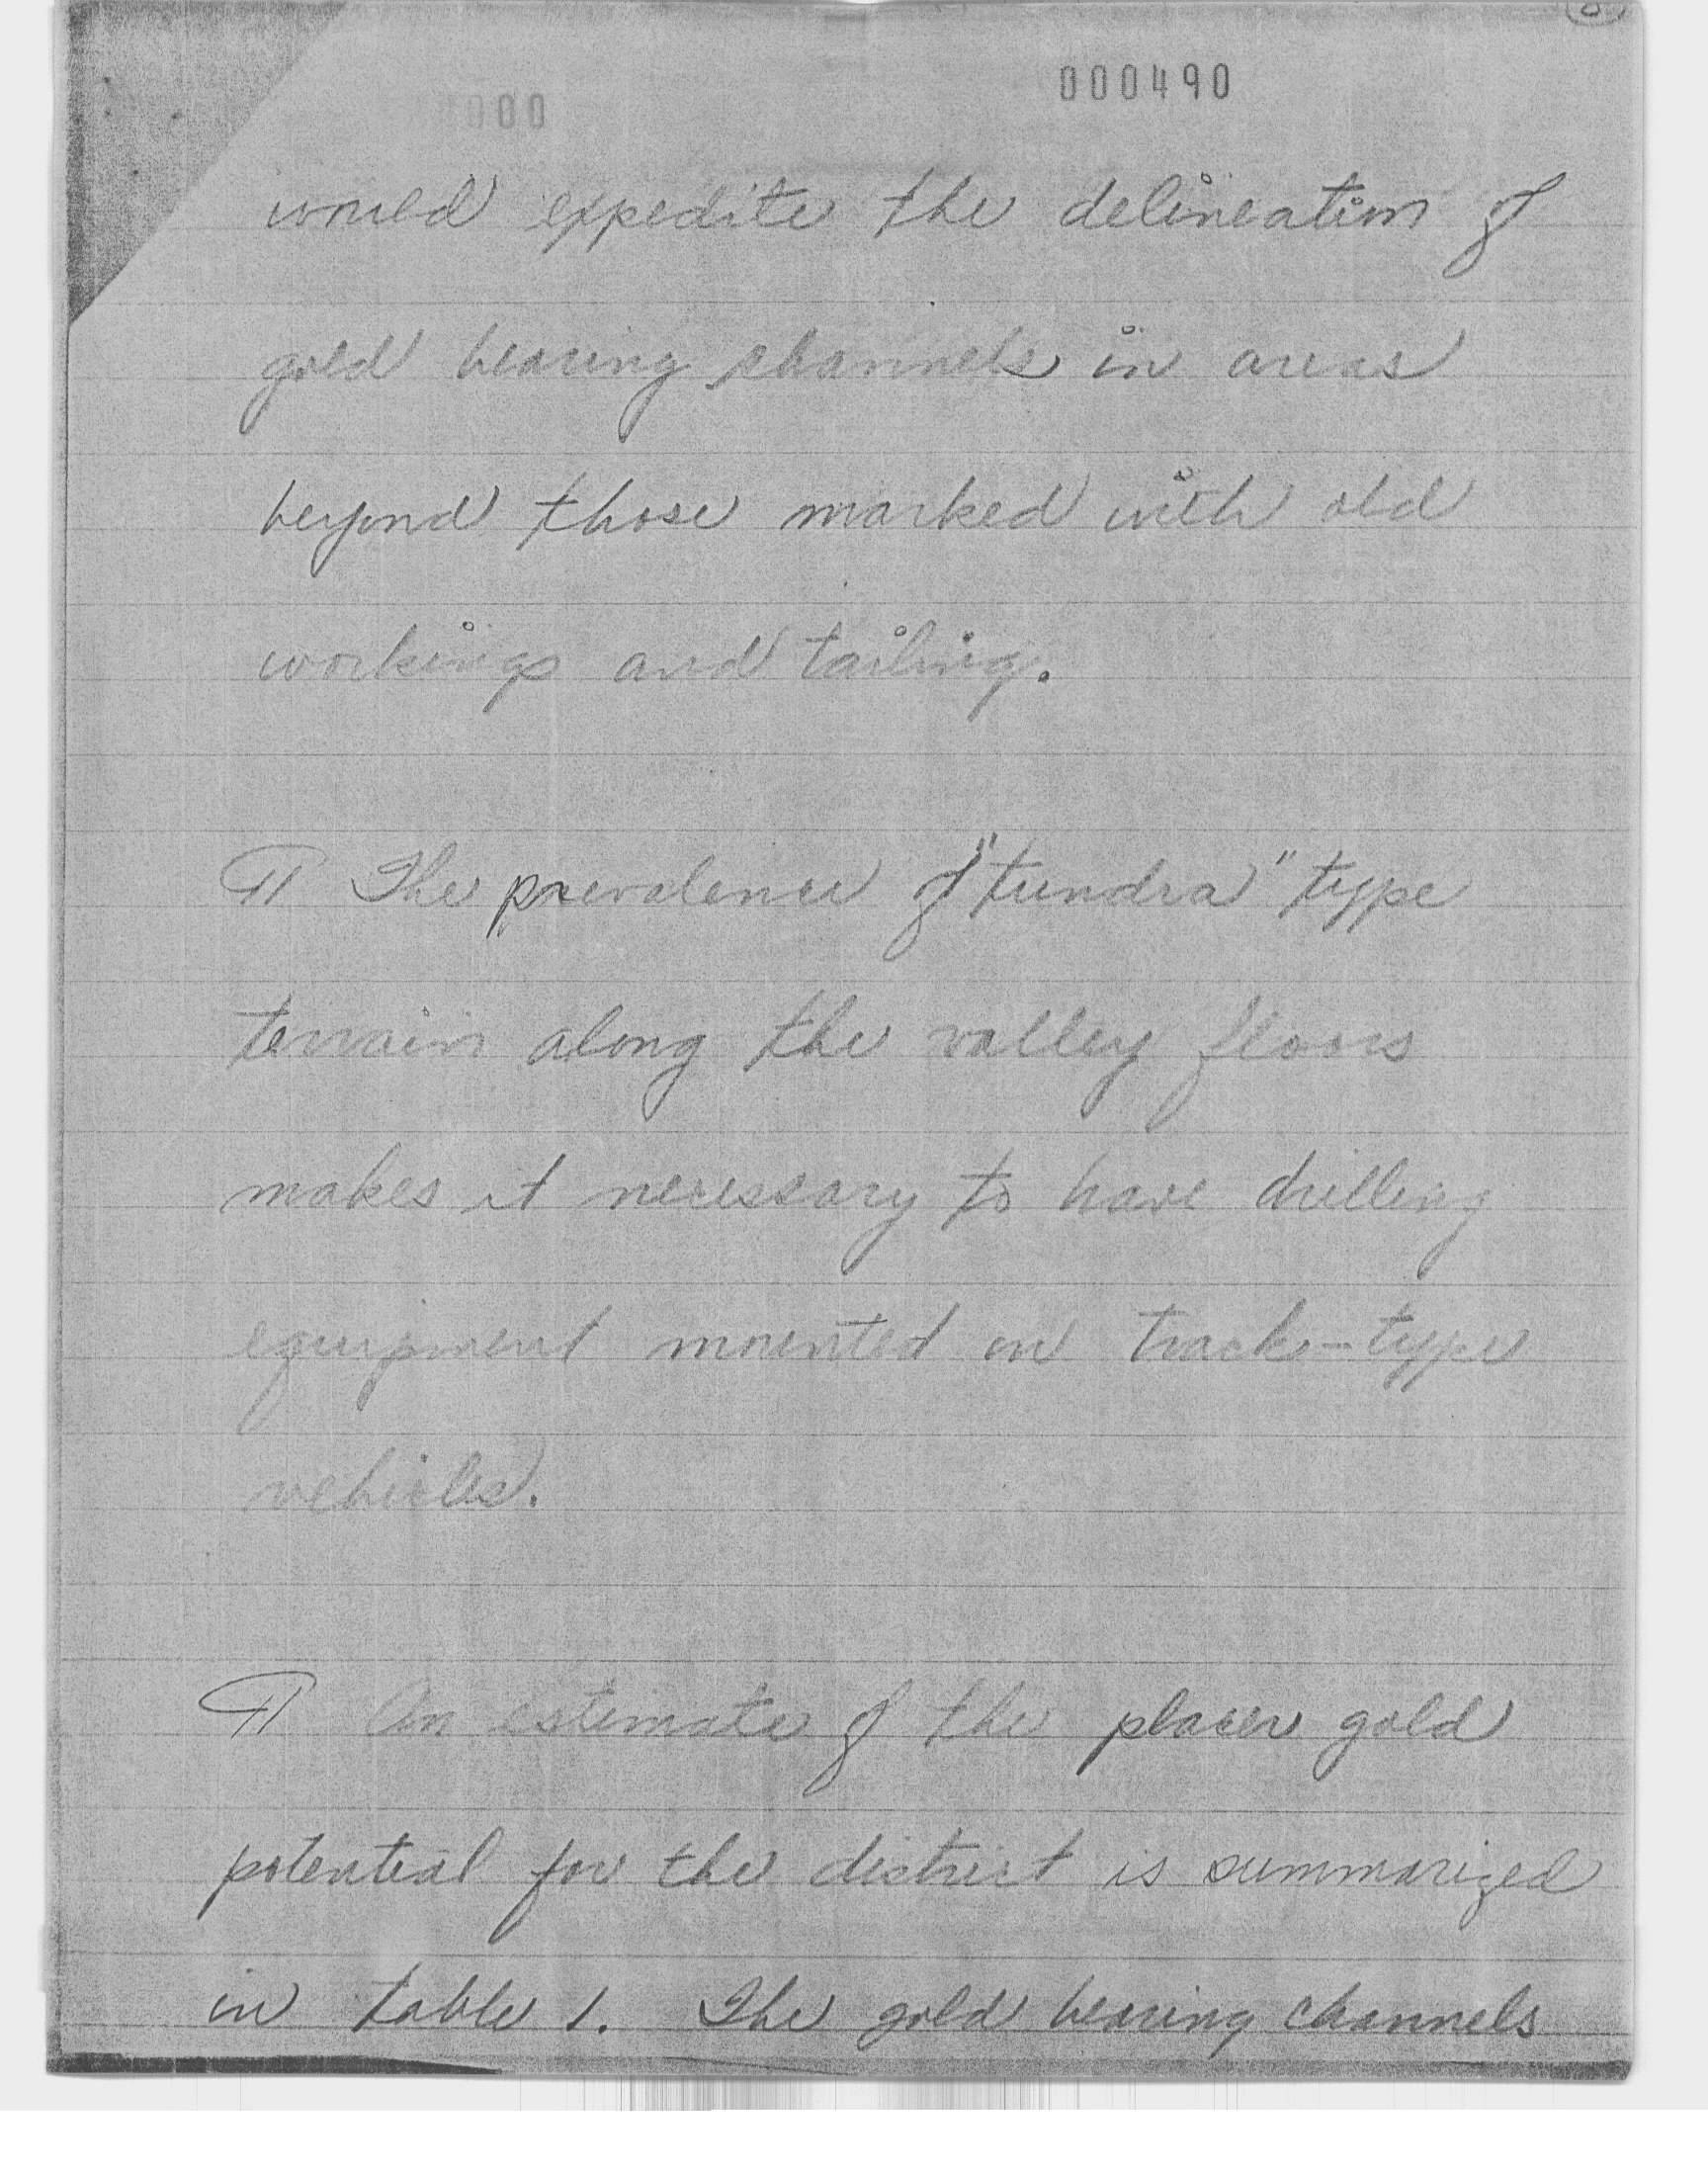 000490
000
would expedite the delineation of
gold bearing channels in areas
beyond those marked with old
workings and tailing.
¶ The prevalence of "tundra" type
terrain along the valley floors
makes it necessary to have drilling
equipment mounted on track-type
vehicles.
¶ An estimate of the placer gold
potential for the district is summarized
in table 1. The gold bearing channels